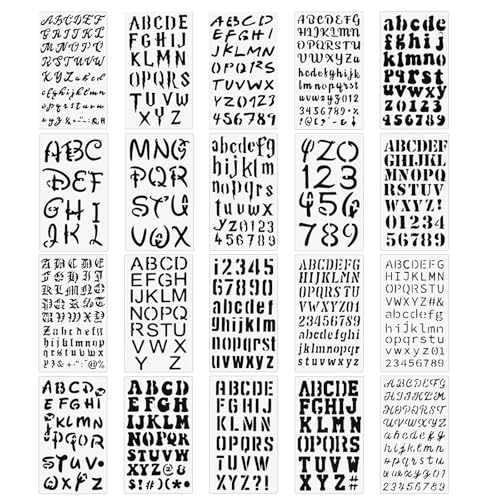 ABCDEF
GHIJKL
MNOPQR
STUVWX
ABCDE
FGHIJ
KLMN
OPQRS
TUVW
XYZ
ABCD
EFGHI
JKLMN
OPQRS
TUVWX
YZ0123
456789
ABCDEFG
HIJKLMN
OPQRSTU
VWXYZa
bcdefghijk
lmnopqrst
uvwxyz012
3456789
abcde
fghij
klmno
pqrst
uvwxyz
01234
56789
ABC
DEF
GHI
JKL
MNO
PQR
STU
VWX
abcdef
ghijkl
mnopqrs
tuvwxyz
0123
456789
YZ0
123
456
789
ABCDEF
GHIJKL
MNOPQR
STUVW
XYZ!
01234
56789
ABCDE
FGHIJ
KLMNO
PQRST
UVWXY
Zabcdefg
hijklmn
opqrstuvw
ABCD
EFGHI
JKLM
NOPQ
RSTU
VWX
Y Z
12345
67890
abcdef
ghijklm
nopqrst
uvwxyz
ABCDEFG
HIJKLMN
OPQRSTU
VWXYZ01
23456789
abcdefghi
jklmnopqr
stuvwxyz
ABCDEFG
HIJKLMN
OPQRSTU
VWXYZ#&
abcdefg
hijklmn
opqrstu
vwxyz01
23456789
ABCD
EFGHI
JKLMN
OPQR
STUV
WXYZ
ABCD
EFGH
IJKLM
NOPQR
STUVW
XYZ@&
$!#)(*;
ABCDE
FGHIJ
KLMN
OPQRS
TUVW
XYZ?!
ABCDE
FGHIJ
KLMN
OPQRS
TUVW
XYZ
ABCDEFG
HIJKLM
NOPQRS
TUVWXYZ